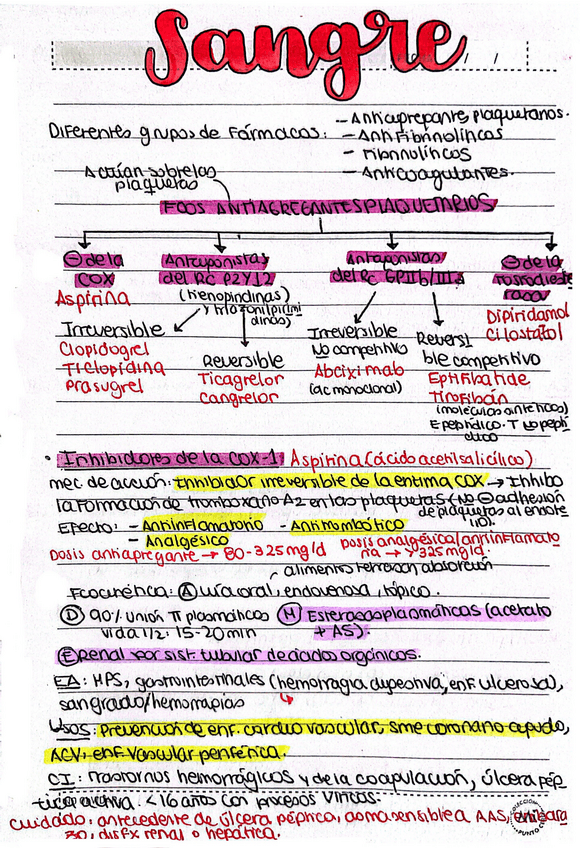 Sangre
/ /
Diferentes grupos de Fármacos: - Antiagregante plaquetarios.
- Antifibrinolíticos
- Fibrinolíticos
- Anticoagulantes.
Actúan sobre las plaquetas
FCOS ANTIAGREGANTES PLAQUETARIOS
⊖ de la COX
Aspirina
Antagonistas del Rc P2Y12
(tienopindinas) y triazolpirimidinas)
Irreversible
Clopidogrel
Ticlopidina
Prasugrel
Reversible
Ticagrelor
Cangrelor
Antagonistas del Rc GPIIb/IIIa
Irreversible
No competitivo
Abciximab
(ac monoclonal)
Reversible competitivo
Eptifibatide
Tirofibán
(moléculas sintéticas)
E peptídico. T no peptídico
⊖ de la fosfodiesterasa
Dipiridamol
Cilostatol
• Inhibidores de la COX-1 Aspirina (ácido acetilsalicílico)
mec de acción: Inhibidor irreversible de la enzima COX → Inhibo
la formación de tromboxano A2 en las plaquetas (No ⊖ adhesión
de plaquetas al endote
lio).
Efecto: - Antiinflamatorio - Antitrombótico
- Analgésico
Dosis antiagregante → 80-325mg/d Dosis analgésica/antiinflamato
ria → > 325 mg/d.
alimentos retrasan absorción
Fcocinética: Ⓐ vía oral, endovenosa, tópico.
Ⓓ 90% unión Π plasmáticas Ⓜ Esterasas plasmáticas (acetato
vida 1/2: 15-20min + AS).
Ⓔ renal por sist. tubular de ácidos orgánicos.
EA: HPS, gastrointestinales (hemorragia digestiva, enf. ulcerosa),
sangrado/hemorragias
Usos: Prevención de enf. cardio vascular, sme coronario agudo,
ACV, enf vascular periférica.
CI: Trastornos hemorrágicos y de la coagulación, úlcera pép
tica activa. < 16 años con procesos virales.
cuidado: antecedente de úlcera péptica, asma sensible a AAS, embara
zo, disfx renal o hepática.